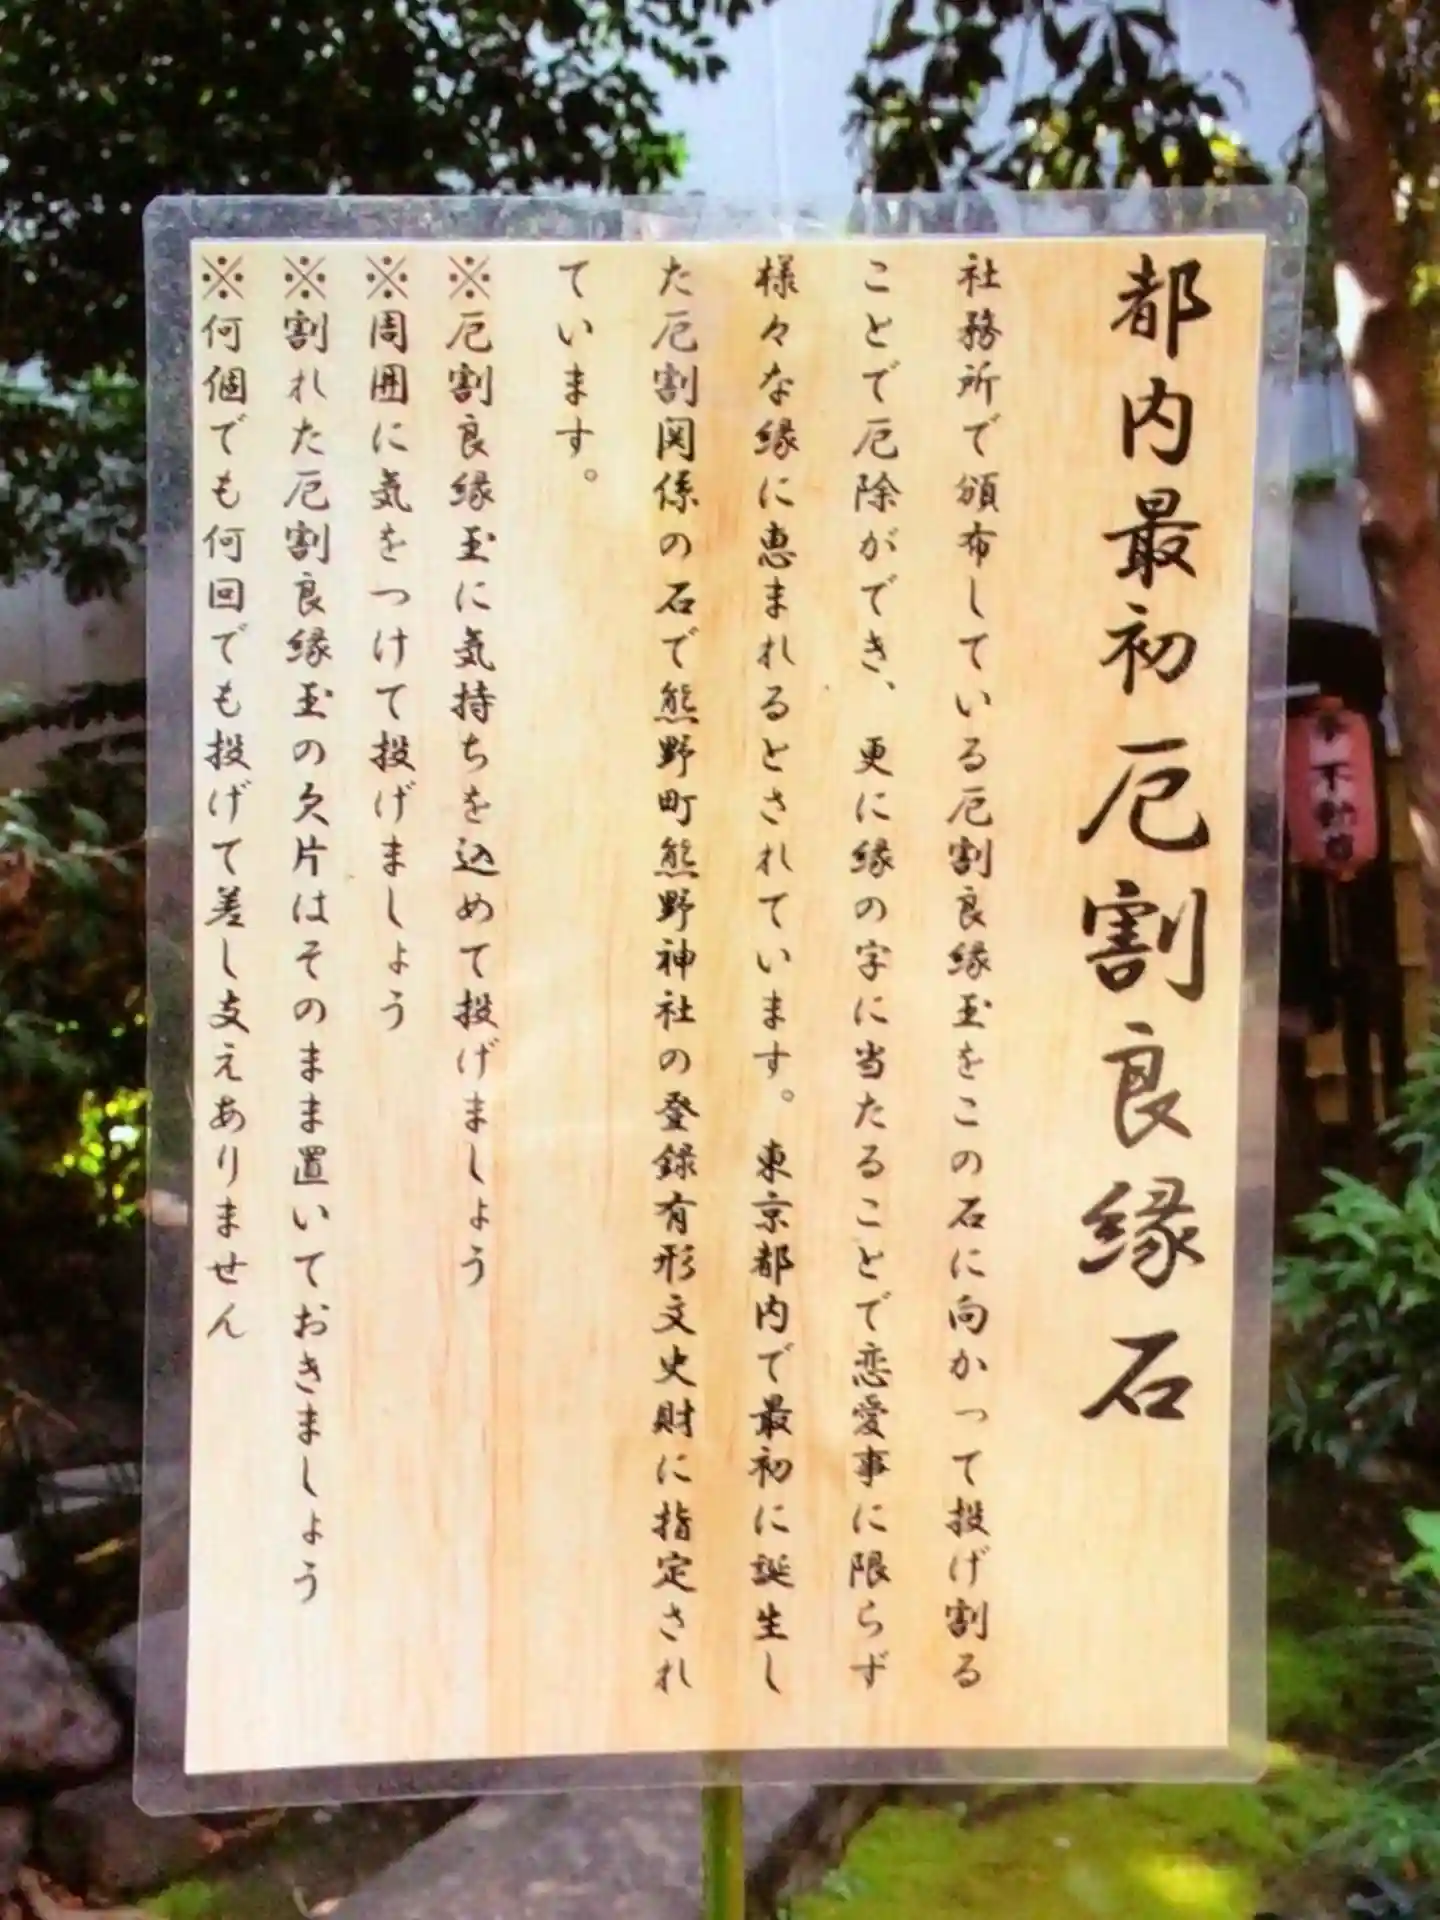 都内最初厄割良縁石
社務所で頒布している厄割良縁玉をこの石に向かって投げ割る
ことで厄除ができ、更に縁の字に当たることで恋愛事に限らず
様々な縁に恵まれるとされています。東京都内で最初に誕生し
た厄割関係の石で熊野町熊野神社の登録有形文史財に指定され
ています。
※厄割良縁玉に気持ちを込めて投げましょう
※周囲に気をつけて投げましょう
※割れた厄割良縁玉の欠片はそのまま置いておきましょう
※何個でも何回でも投げて差し支えありません
不動尊